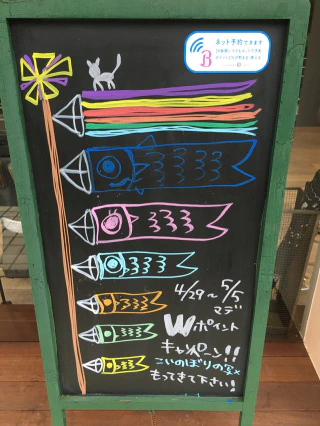 ネット予約できます
B
4/29~5/5
マデ
Wポイント
キャンペーン!!
こいのぼりの写×
もってきて下さい!